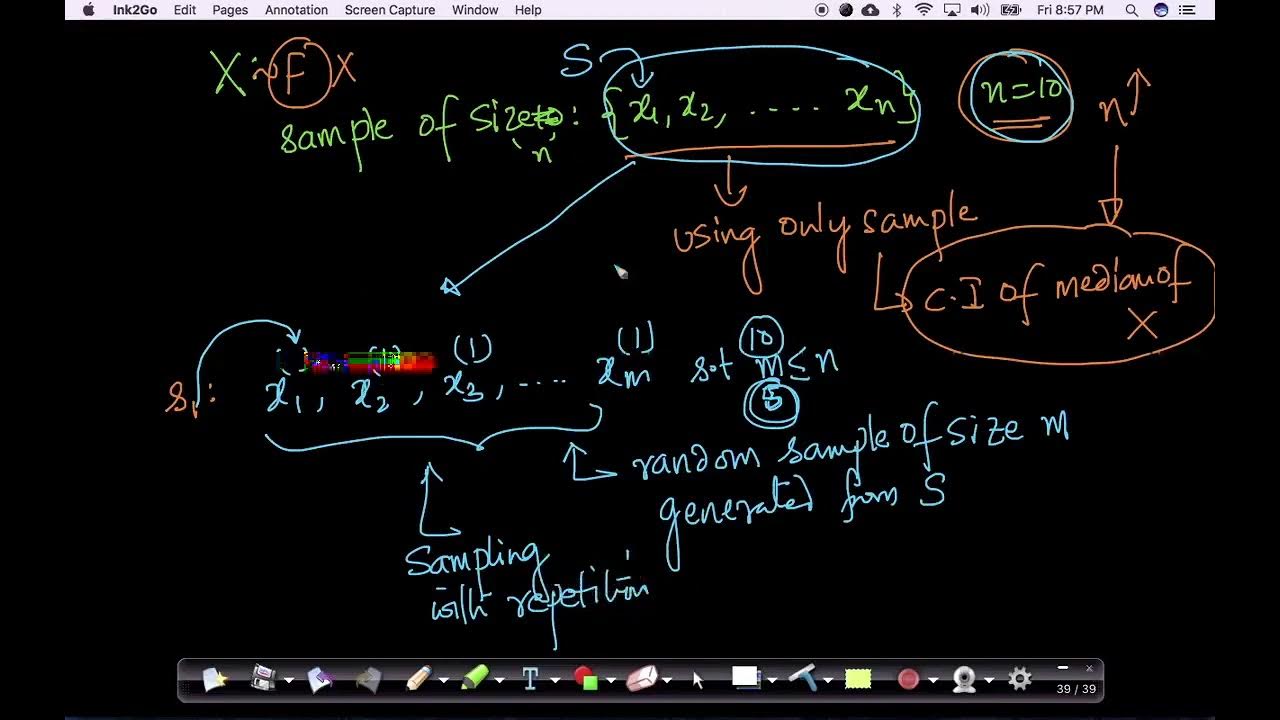 Ink2Go Edit Pages Annotation Screen Capture Window Help Fri 8:57 PM
X ~ F X
S
sample of size n : {x1, x2, ..... xn}
n=10
n↑
using only sample
C.I of median of X
s1: x1, x2(1), x3(1), .... xm(1) s.t m ≤ n
10
5
random sample of size m
generated from S
Sampling
with repetition
T
39 / 39